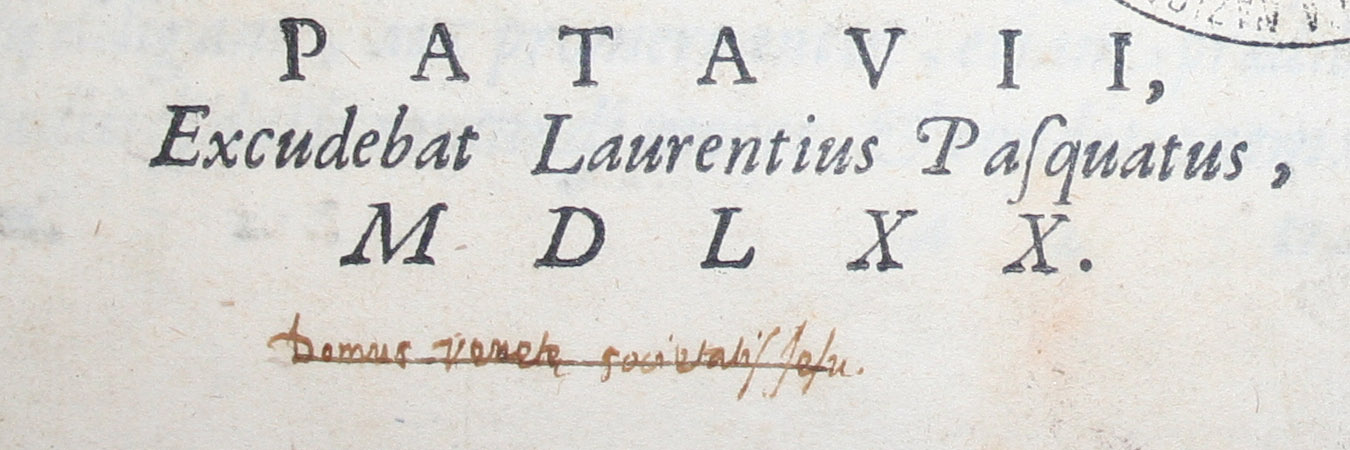 PATAVII,
Excudebat Laurentius Paſquatus,
MDLXX.
Domus venetę societatiſ Jeſu.